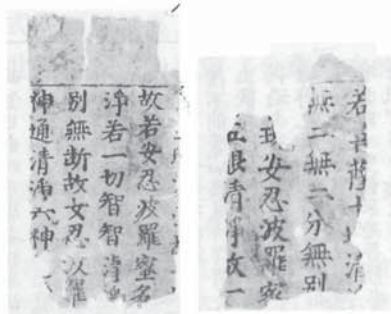 若菩薩十地清
無二無二分無別
安忍波羅蜜
眼清淨故一
故若安忍波羅蜜多
淨若一切智智清淨
別無斷故安忍波羅
神通清淨六神